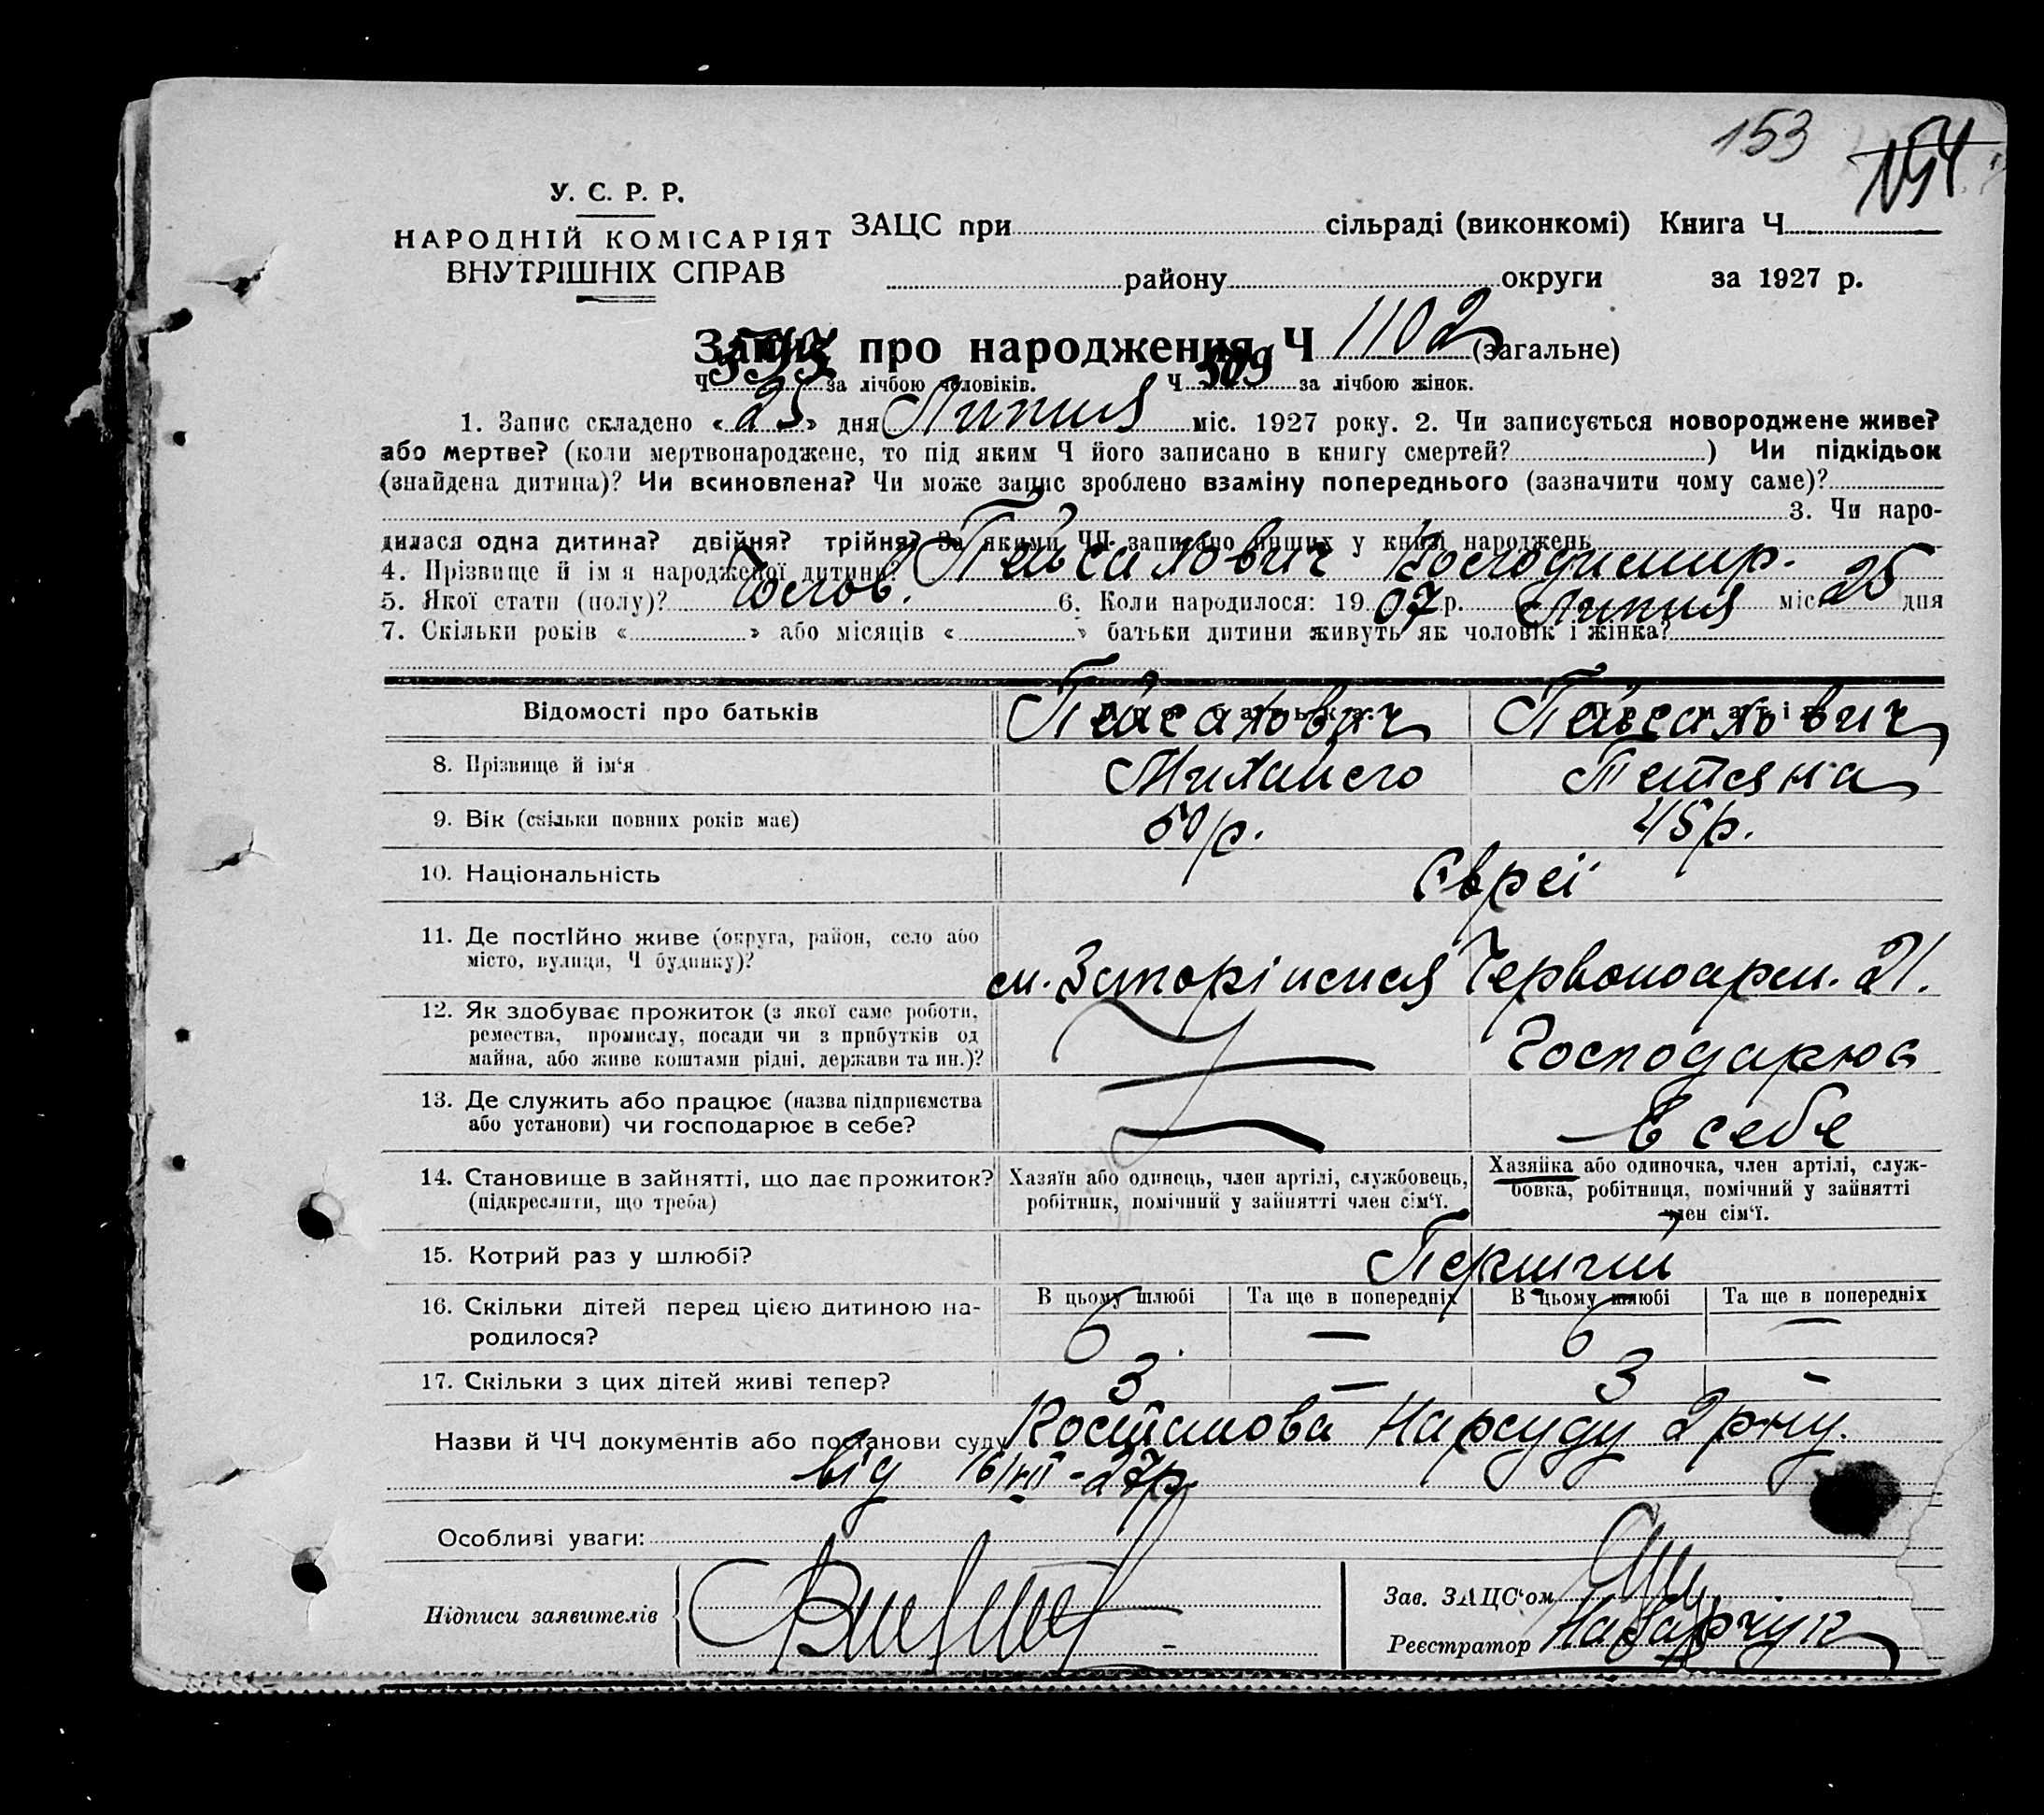 153 154
У. С. Р. Р.
НАРОДНІЙ КОМІСАРІЯТ
ВНУТРІШНІХ СПРАВ
ЗАЦС при сільраді (виконкомі) Книга Ч
району округи за 1927 р.
Запис про народження Ч 1102 (загальне)
Ч 593 за лічбою чоловіків. Ч 509 за лічбою жінок.
1. Запис складено « 25 » дня Липня міс. 1927 року. 2. Чи записується новороджене живе?
або мертве? (коли мертвонароджене, то під яким Ч його записано в книгу смертей? ) Чи підкідьок
(знайдена дитина)? Чи всиновлена? Чи може запис зроблено взаміну попереднього (зазначити чому саме)?
3. Чи наро-
дилася одна дитина? двійня? трійня? За якими ЧЧ записано инших у книзі народжень
4. Прізвище й ім я народженої дитини? Пейсахович Володимир.
5. Якої стати (полу)? Чолов. 6. Коли народилося: 19 07 р. Липня міс 25 дня
7. Скільки років « » або місяців « » батьки дитини живуть як чоловік і жінка?
Відомості про батьків Пейсахович Пейсахович
8. Прізвище й ім'я Михайло Тетяна
9. Вік (скільки повних років має) 50 р. 45 р.
10. Національність Євреї
11. Де постійно живе (округа, район, село або
місто, вулиця, Ч будинку)?
м. Запоріжжя Червоноарм. 21.
12. Як здобуває прожиток (з якої саме роботи,
ремества, промислу, посади чи з прибутків од
майна, або живе коштами рідні, держави та ин.)?
Господарює
13. Де служить або працює (назва підприємства
або установи) чи господарює в себе?
В себе
14. Становище в зайнятті, що дає прожиток?
(підкреслити, що треба)
Хазяїн або одинець, член артілі, службовець,
робітник, помічний у зайнятті член сім'ї.
Хазяйка або одиночка, член артілі, служ-
бовка, робітниця, помічний у зайнятті
член сім'ї.
15. Котрий раз у шлюбі? Перший
16. Скільки дітей перед цією дитиною на-
родилося?
В цьому шлюбі Та ще в попередніх В цьому шлюбі Та ще в попередніх
6 — 6 —
17. Скільки з цих дітей живі тепер? 3 — 3 -
Назви й ЧЧ документів або постанови суду Постанова Нарсуду 2 р-ну.
від 16/VII-27р.
Особливі уваги:
Підписи заявителів
Зав. ЗАЦС'ом
Реєстратор